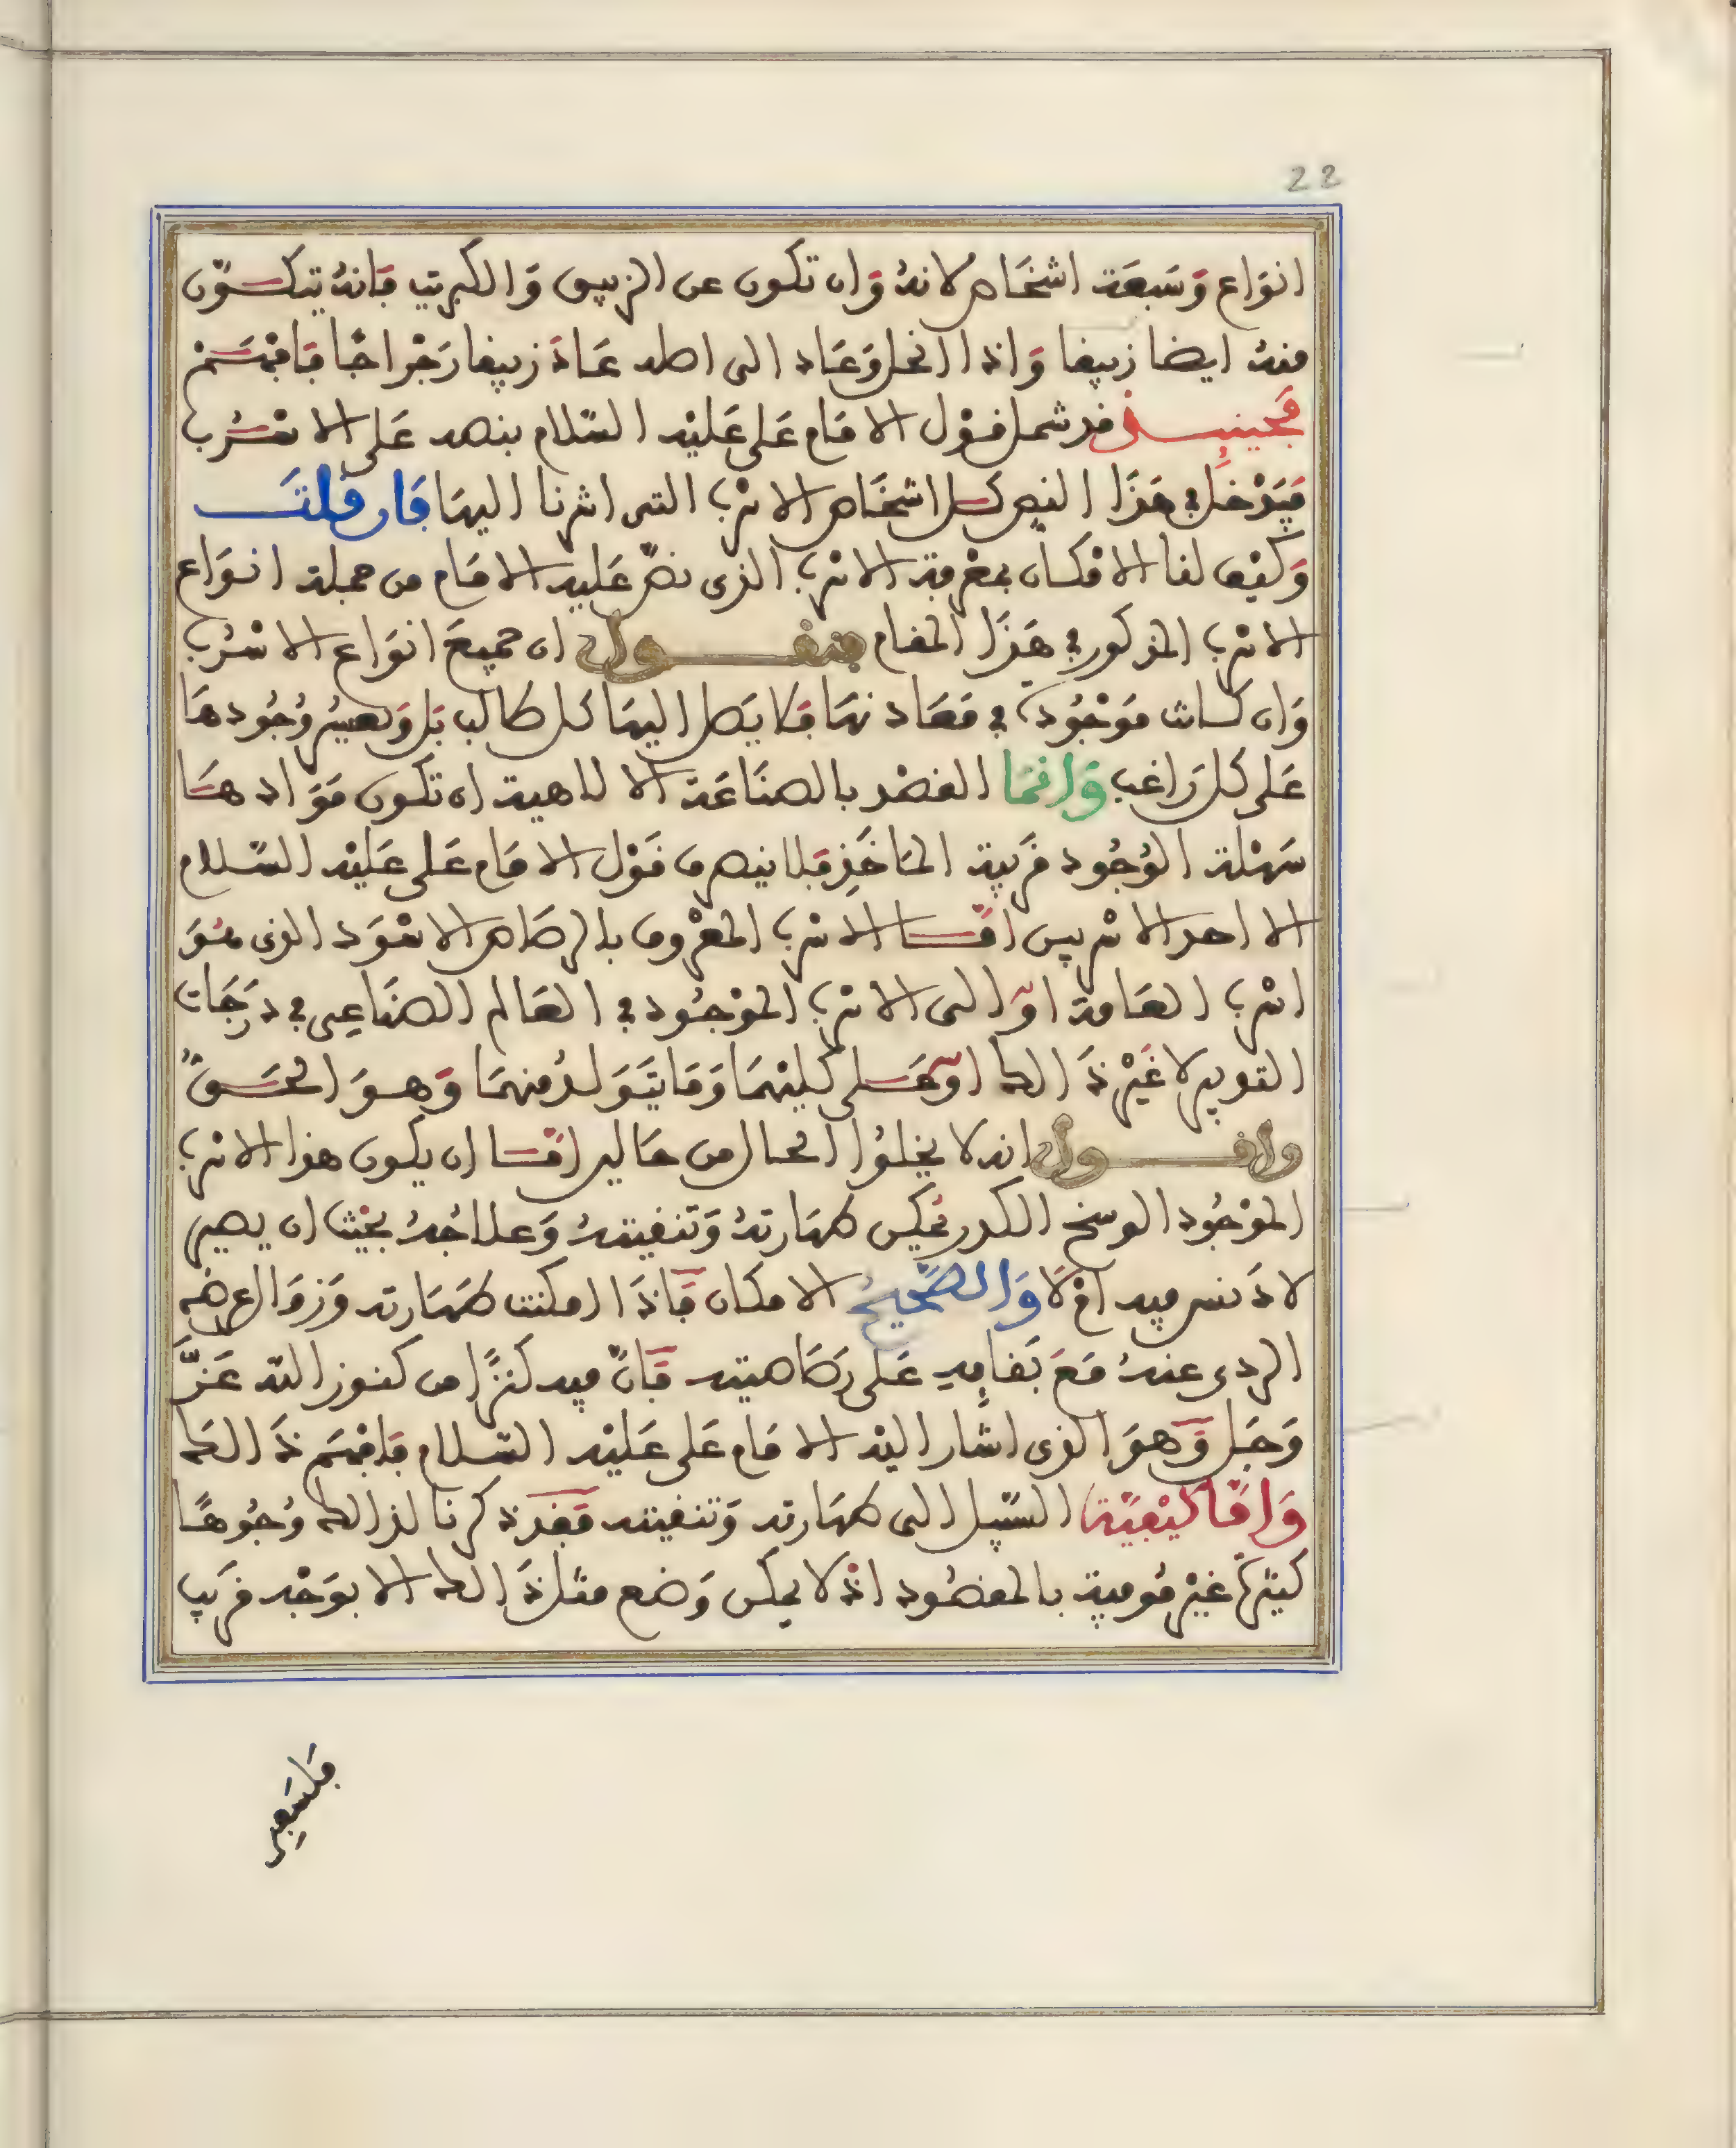 22
انوَاع وَسَبعَة اشخَاص لانهُ وَان تكون عن الزيبق وَالكبريت فَانهُ يتكَوّن
منهُ ايضا زيبقا وَاذا انحل وَعَاد الى اصله عَادَ زيبقا رَجْرَاجًا فَافْهَمْ
فحينئذ قد شمل قوْل الامَام عَلى عَليْه السّلام بنصه عَلى الاسْرُب
فيَدْخل في هَذَا النص كل اشخَاص الاسْرب التى اشرنا اليهَا فَان قلتَ
وَكيْف لنا الامْكان بمعْرفة الاسْرب الذى نصّ عَليه الامَام من جملة انوَاع
الاسْرب المذكور في هَذَا المقام فنقول ان جميعَ انوَاع الاسْرُب
وَان كانت موْجُودة في مَعَادنهَا فلا يَصل اليهَا كل طالب بَل وَيعسر وُجُودهَا
عَلى كل رَاغب وَانمَا القصْد بالصنَاعَة الالاهية ان تكون مَوَادهَا
سَهْلة الوُجُود قرَيبة المَاخَذِ فلا ينصرف قَوْل الامَام عَلى عَليْه السّلام
الا احد الاسْربين امّا الاسْرب المعْروف بالرصَاص الاسْوَد الذى هُوَ
اسْرب العَامة اوْ الى الاسْرب الموْجُود في العَالم الصنَاعِى في دَرَجَات
التدبير لا غَيْر ذَالك اوْ عَلى كليْهمَا وَمَا يتَوَلدُ منهمَا وَهوَ الحَقّ
واقول انه لا يخلوُا الحال من حَالين امّا ان يكون هذا الاسْرب
الموْجُود الوسخ الكدر يُمكن طهَارتهُ وَتنقيتهُ وَعلاجُهُ بحيْث ان يصير
لا دَنس فيه امْ لَا وَالصّحِيحُ الامكان فَاذَا امكنت طهَارته وَزوَال عرضه
الردى عنهُ مَعَ بَقايِه عَلى رَصَاصيته فَانّ فيه كنزًا من كنوز اللّه عَزَّ
وَجَل وَهوَ الذى اشار اليْه الامَام عَلى عَليْه السّلام فَافْهَم ذَالك
وَامَّا كيْفيّة السّبيل الى طهَارته وَتنقيته فَقدْ ذكرنا لذالك وُجُوهًا
كثيْرة غيْر مُوفية بالمقصُود اذْ لا يمكن وَضع مثل ذَالك الا بوَجْه قرَيب